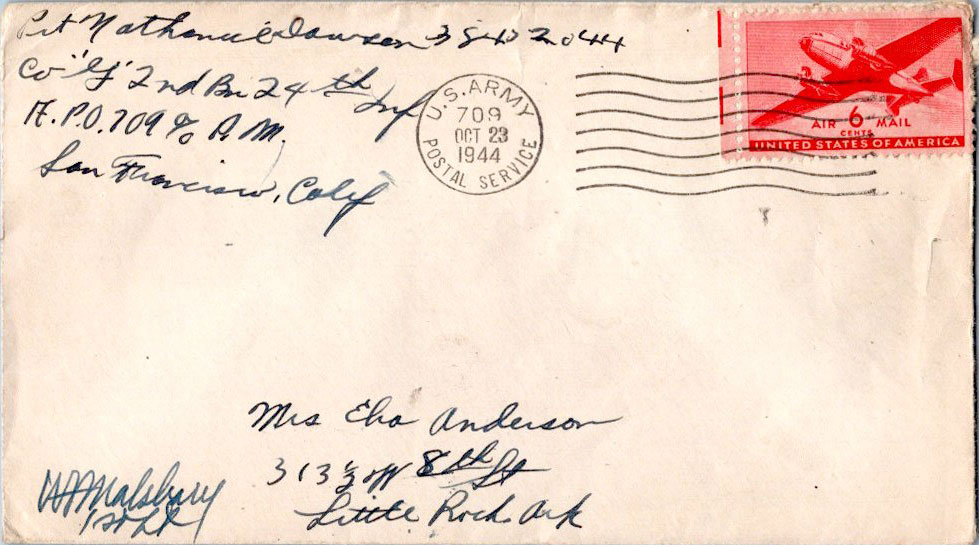 Pvt Nathaniel Dawson
Co "G" 2nd Bn 24th Inf
A.P.O. 709 c/o P.M.
San Francisco, Calif
U.S. ARMY
709
OCT 23
1944
POSTAL SERVICE
AIR 6 MAIL
CENTS
UNITED STATES OF AMERICA
Mrs Elva Anderson
313½ W 8th St
Little Rock Ark
Malsbary
1st Lt